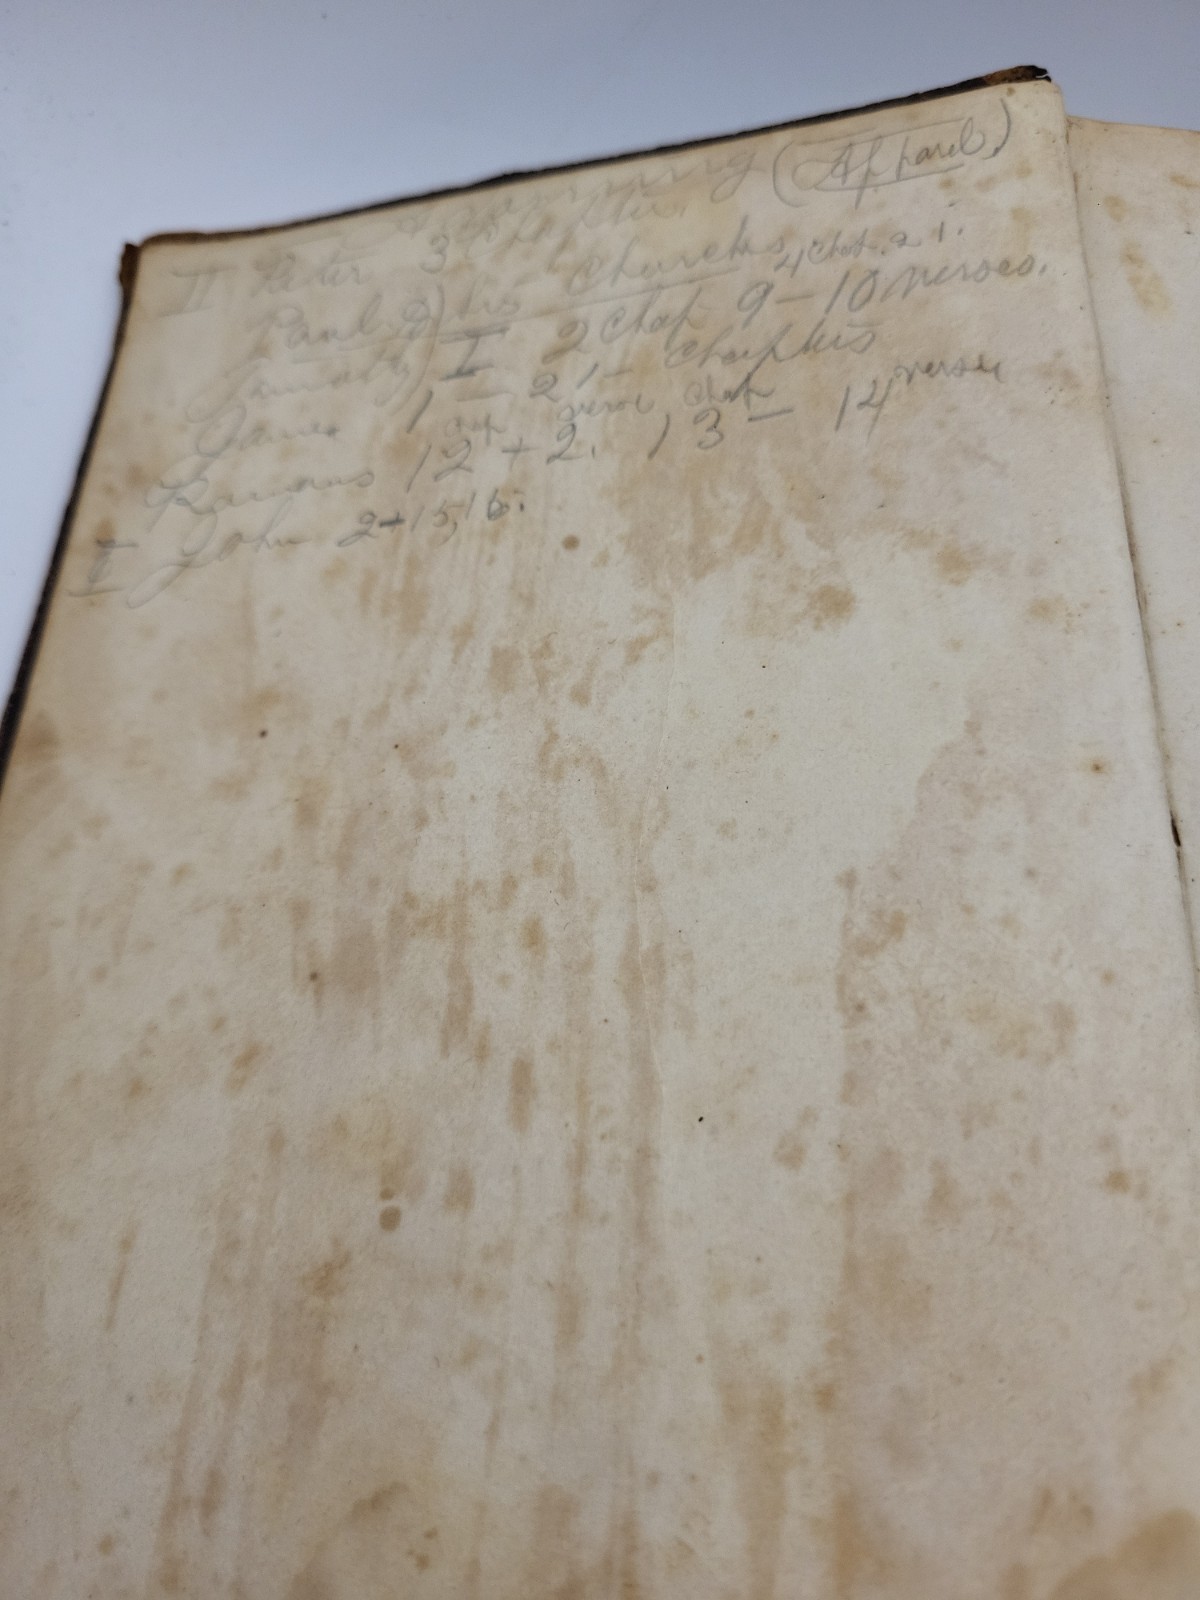 (Apparel)
II Peter 3 Chapter
Paul & his Churches
Timothy) I 2 Chap 9 – 10 verses.
4 Chap. 2 1.
James 1 – 2 1– Chapters
Romans 12 + 2. 13 – 14
chap verse Chap verse
I John 2+15,16.